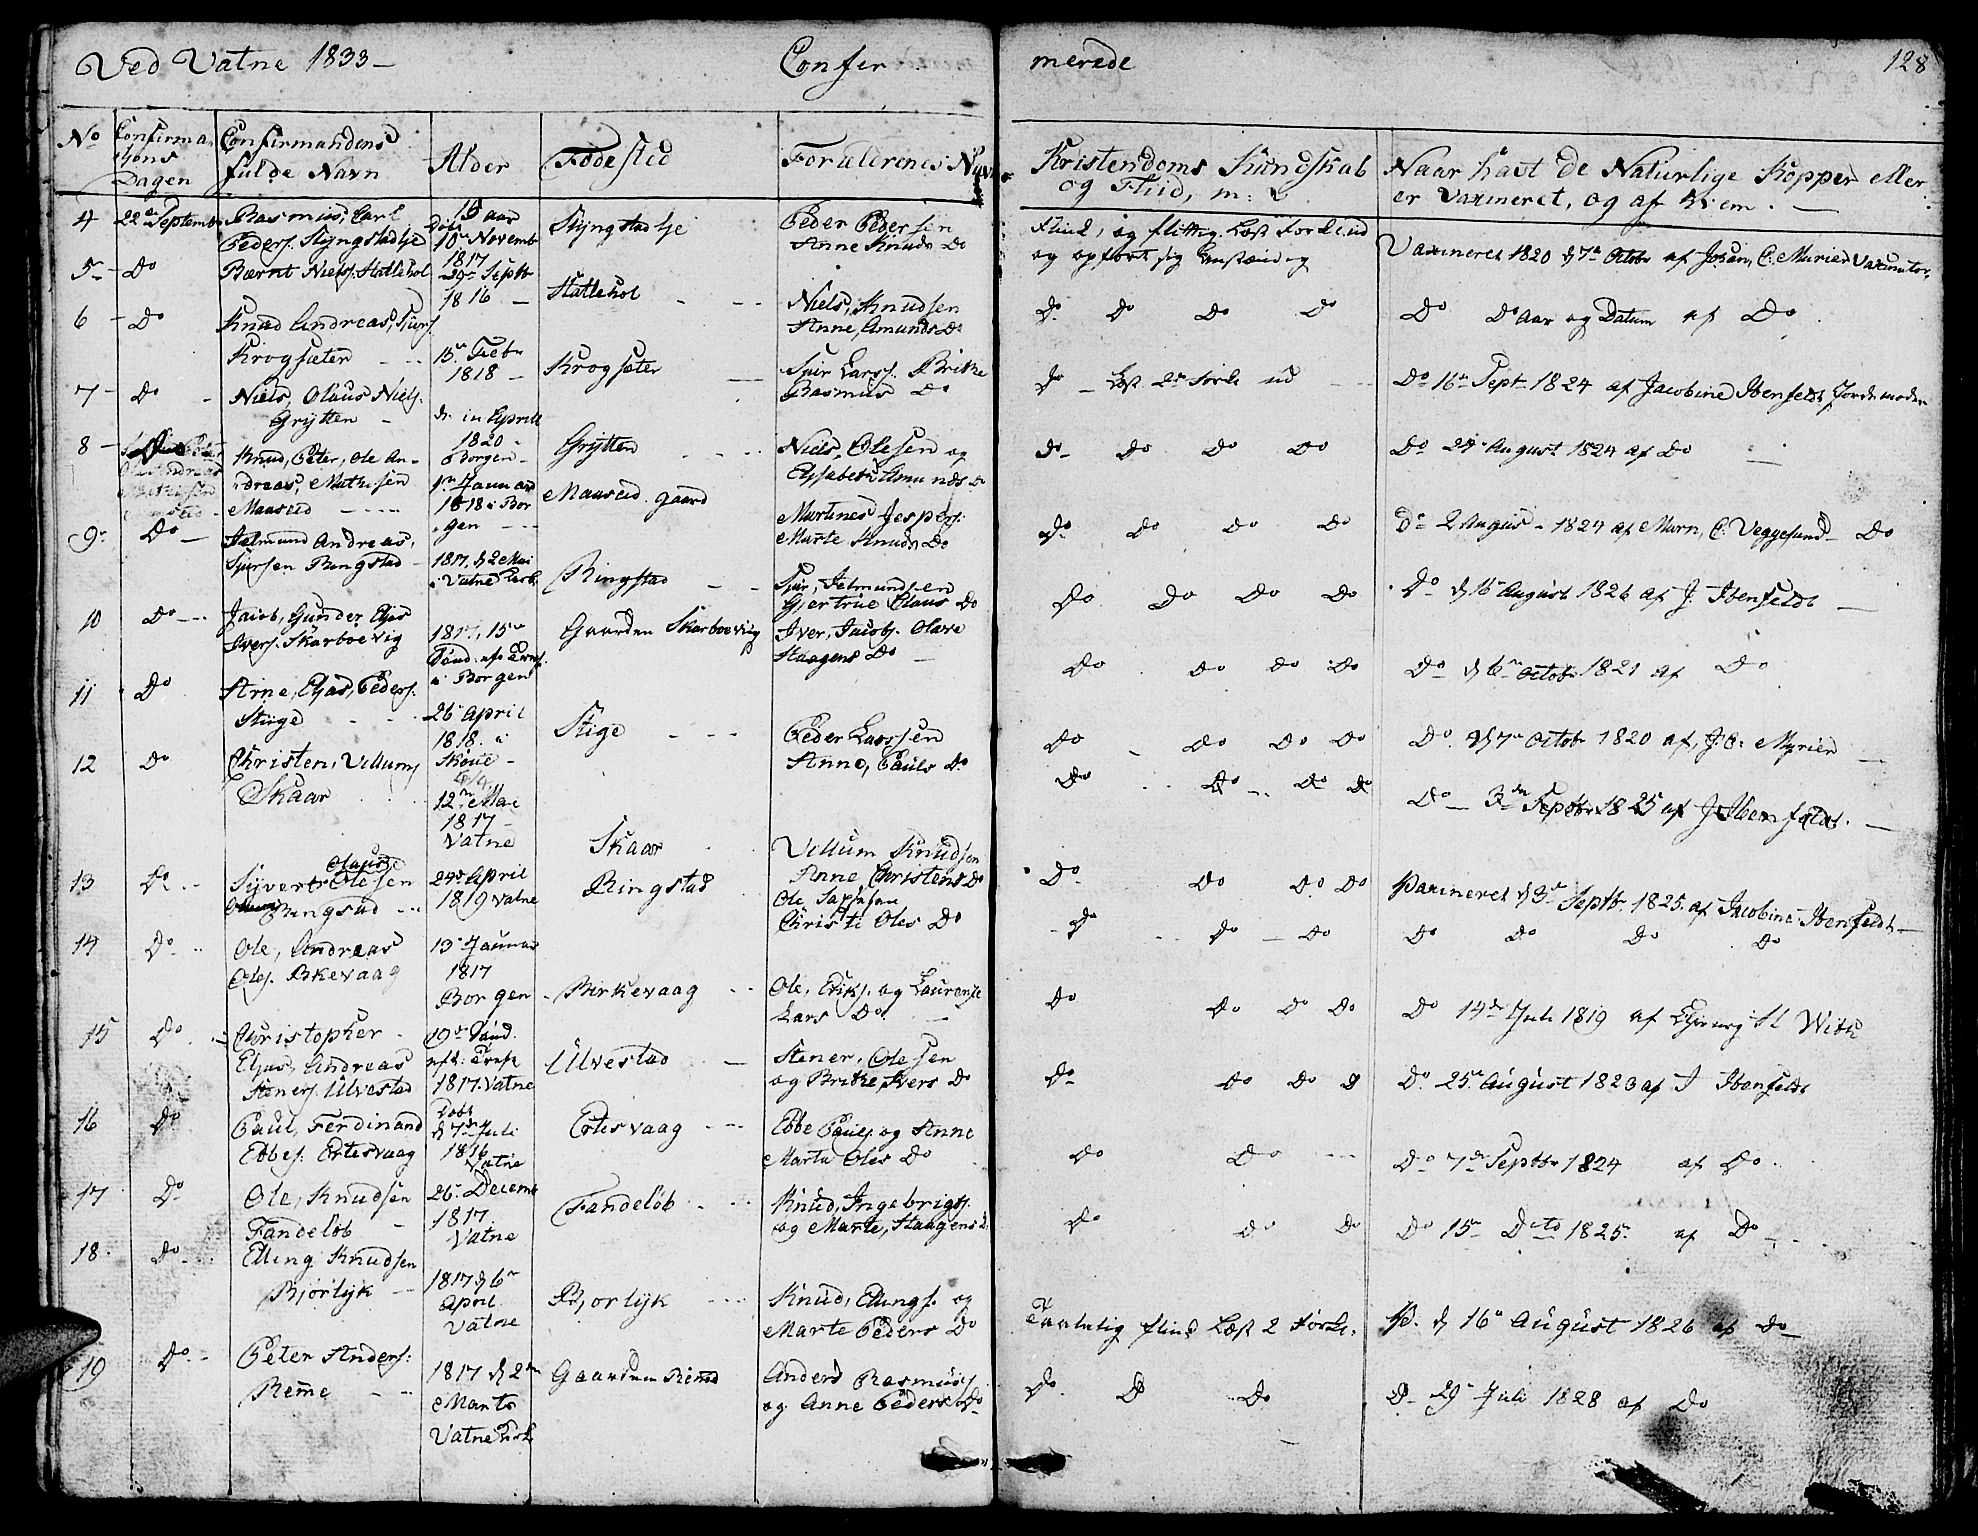 Ved Vatne 1833 – Confer merede 128
No Confirma, tions Dagen
Confirmandens fulde Navn
Alder
Føde sted
Forældrenes Navn
Kristendoms Kundskab og Fliid, m:
Naar havt de Naturlige Kopper eller er Vaxineret, og af hvem. –
4 22de Septemb Rasmus, Carl
Peders. Slyngstadlje
15 aar Døbt 10de Novemb 1817
Slyngstadlje
Peder Pedersen
Anne Knuds Do
Flink, og flittig. Læst Forkl. ud
og opført sig Anstændig
Vaxineret 1820 d 7de Octobr af Johan, C. Murier Vaxinator,
5 – Do Bærnt Niels. Hatlehol
29de Septbr 1816 –
Hatlehol
Niels, Knudsen
Anne, Amunds Do
Do Do Do Do
Do Do Aar og Datum af Do
6 – Do Knud Andreas, Sjurs.
Krogsæter
15de Febr 1818 –
Krogsæter
Sjur Larss. Brithe
Rasmus Do
Do – Læst 2de Forkl ud
Do 16de Sept 1824 af Jacobine Ibenfeldt Jordemoder
7 – Do Niels, Olaus Niels.
Grytten
d. in Aprill 1820 Borgen
Grytten
Niels, Olesen og
Elisabeth Amunds Do
Do Do Do Do
Do 24 August 1824 af Do
8 – Do Knud, Peter, Ole An-
dreas, Mathisen
Maaseid
1ste Januar 1818 i Borgen
Maaseid gaard
Martines Jespers.
Marte Knuds Do
Do Do Do Do
Do 2 August 1824 af Marn, C. Veggesund Do
9 Do Jetmund Andreas,
Sjursen Ringstad
1817, d 2 Mai i Vatne Kirk
Ringstad
Sjur, Jetmundsen
Gjertrue Olaus Do
Do Do Do Do
Do d 16de August 1826 af J. Ibenfeldt –
10 Do Jacob, Gunder, Elias
Ivers. Skarboevig
1817, 15de Sønd. eft Trinf. i Borgen
Gaarden Skarboevig
Iver, Jacobs. Olave
Haagens Do
Do Do Do Do
Do d 6te Octobr 1821 af Do
11 Do Arne, Elias, Peders.
Stige
26de April 1818. i Skoue
Stige
Peder Larssen
Anne, Pauls Do
Do – Do Do Do
Do d 7de Octobr 1820 af, J. C. Myrier
12 Do Christen, Villums
Skaar
12te Mai 1817 – Vatne
Skaar
Villum Knudsen
Anne Christens Do
Do Do Do Do
Do 3de Septbr 1825 af J Ibenfeldt. –
13 Do Syvert Olaus Olesen
Ringstad
24de April 1819 Vatne
Ringstad
Ole
Christi Oles Do
Do Do Do Do
Vaxineret d 3de Septb. 1825. af Jacobine Ibenfeldt –
14 Do Ole, Andreas
Oles. Birkevaag
13de Januar 1817 Borgen
Birkevaag
Ole, Eriks. og Laurense
Lars Do
Do Do Do
Do Do Do Do
15 Do Christopher
Elias, Andreas
Steners. Ulvestad
19de Sønd. eft: Trinf 1817. Vatne
Ulvestad
Stener, Olesen
og Brithe, Ivers Do
Do Do Do Do
Do 14de Juli 1819 af With
16 Do Paul, Ferdinand
Ebbes. Ertesvaag
Døbt d 7de Juli 1816 Vatne
Ertesvaag
Ebbe Pauls. og Anne
Marta Oles Do
Do Do Do
Do 25de August 1823 af J Ibenfeldt
17 Do Ole, Knudsen
Fandeløb
26de Decemb 1817 Vatne
Fandeløb
Knud, Ingebrigts.
og Marte, Haagens d.
Do Do
Do 7de Septbr 1824 af Do
18 Do Elling Knudsen
Bjørlyk
1817 d 6te April Vatne
Bjorlyk
Knud, Ellings. og
Marte Peders Do
Do Do Do
Do 15de Dito 1825. af Do
Taalelig flink Læst 2 Forkl.
V. d 16de August 1826 af Do
19 Do Peter Anders:
Remme
1817 d 2den Marts Vatne Kirk
Gaarden Remme
Anders Rasmuss.
og Anne Peders Do
Do Do Do
Do 29de Juli 1828 af Do